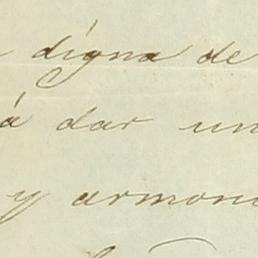 digna de
á dar un
y armoni